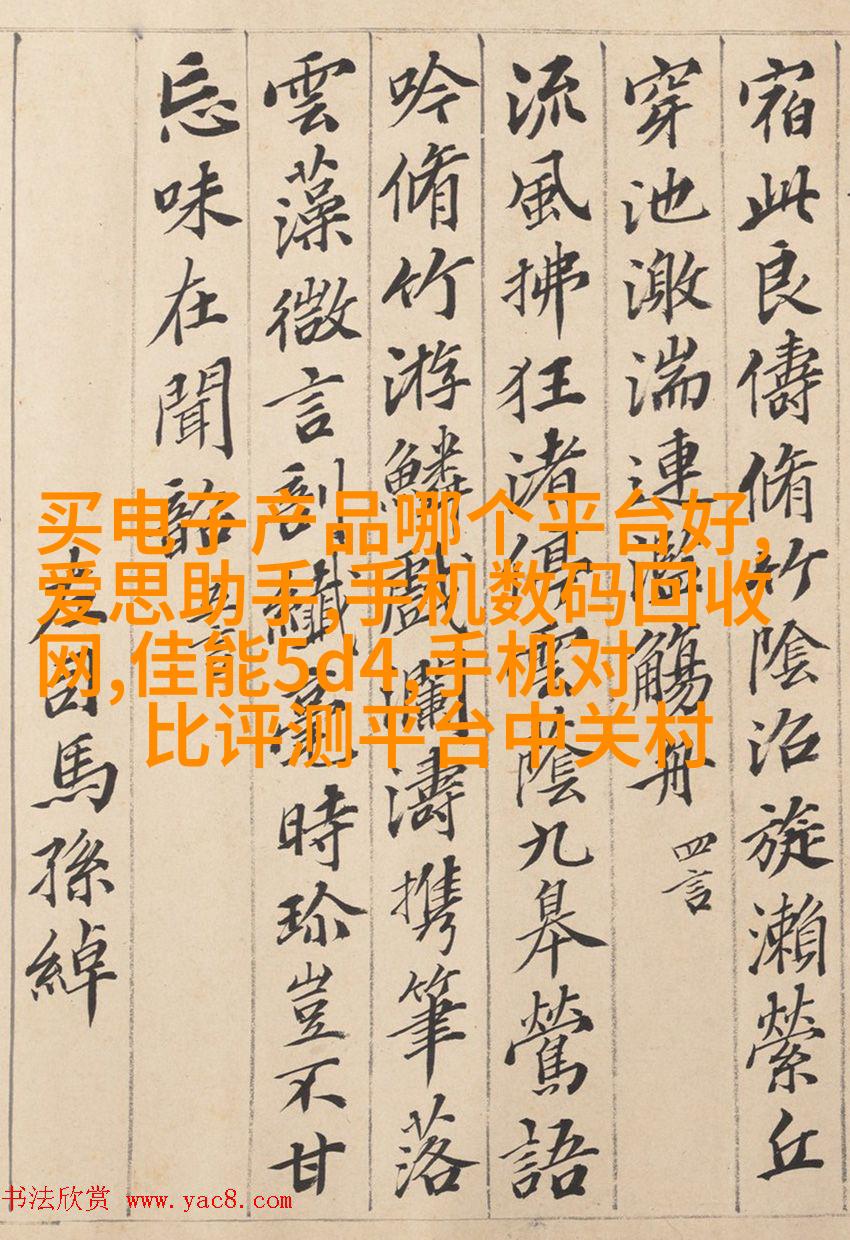 宿此良儔脩竹陰沼旋瀨縈丘
穿池激湍連濫觴舟
四言
流風拂狂渚停雲陰九皋鶯語
吟脩竹游鱗戲瀾濤携筆落
雲藻微言剖纖毫時珍豈不甘
忘味在聞韶
五言
左司馬孫綽
买电子产品哪个平台好,
爱思助手,手机数码回收
网,佳能5d4,手机对
比评测平台中关村
书法欣赏 www.yac8.com